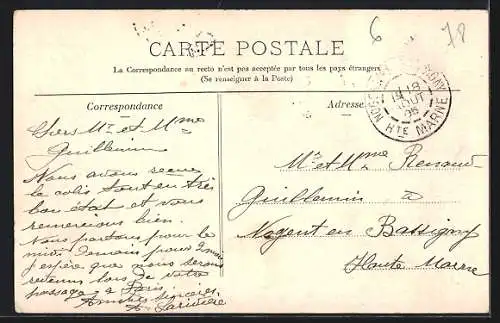 6
78
CARTE POSTALE
La Correspondance au recto n'est pas acceptée par tous les pays étrangers
(Se renseigner à la Poste)
Correspondance
Adresse
NOGENT HTE MARNE
18
AOUT
Chers Mr et Mme
Guillemin
Nous avons
le colis tout en très
bon état et vous
remercions bien.
Nous partons pour le
midi demain
j'espère que nous serons
de votre
passage à Paris
Amitiés sincères
Larivière
Mr et Mme Renaud-
Guillemin à
Nogent en Bassigny
Haute Marne